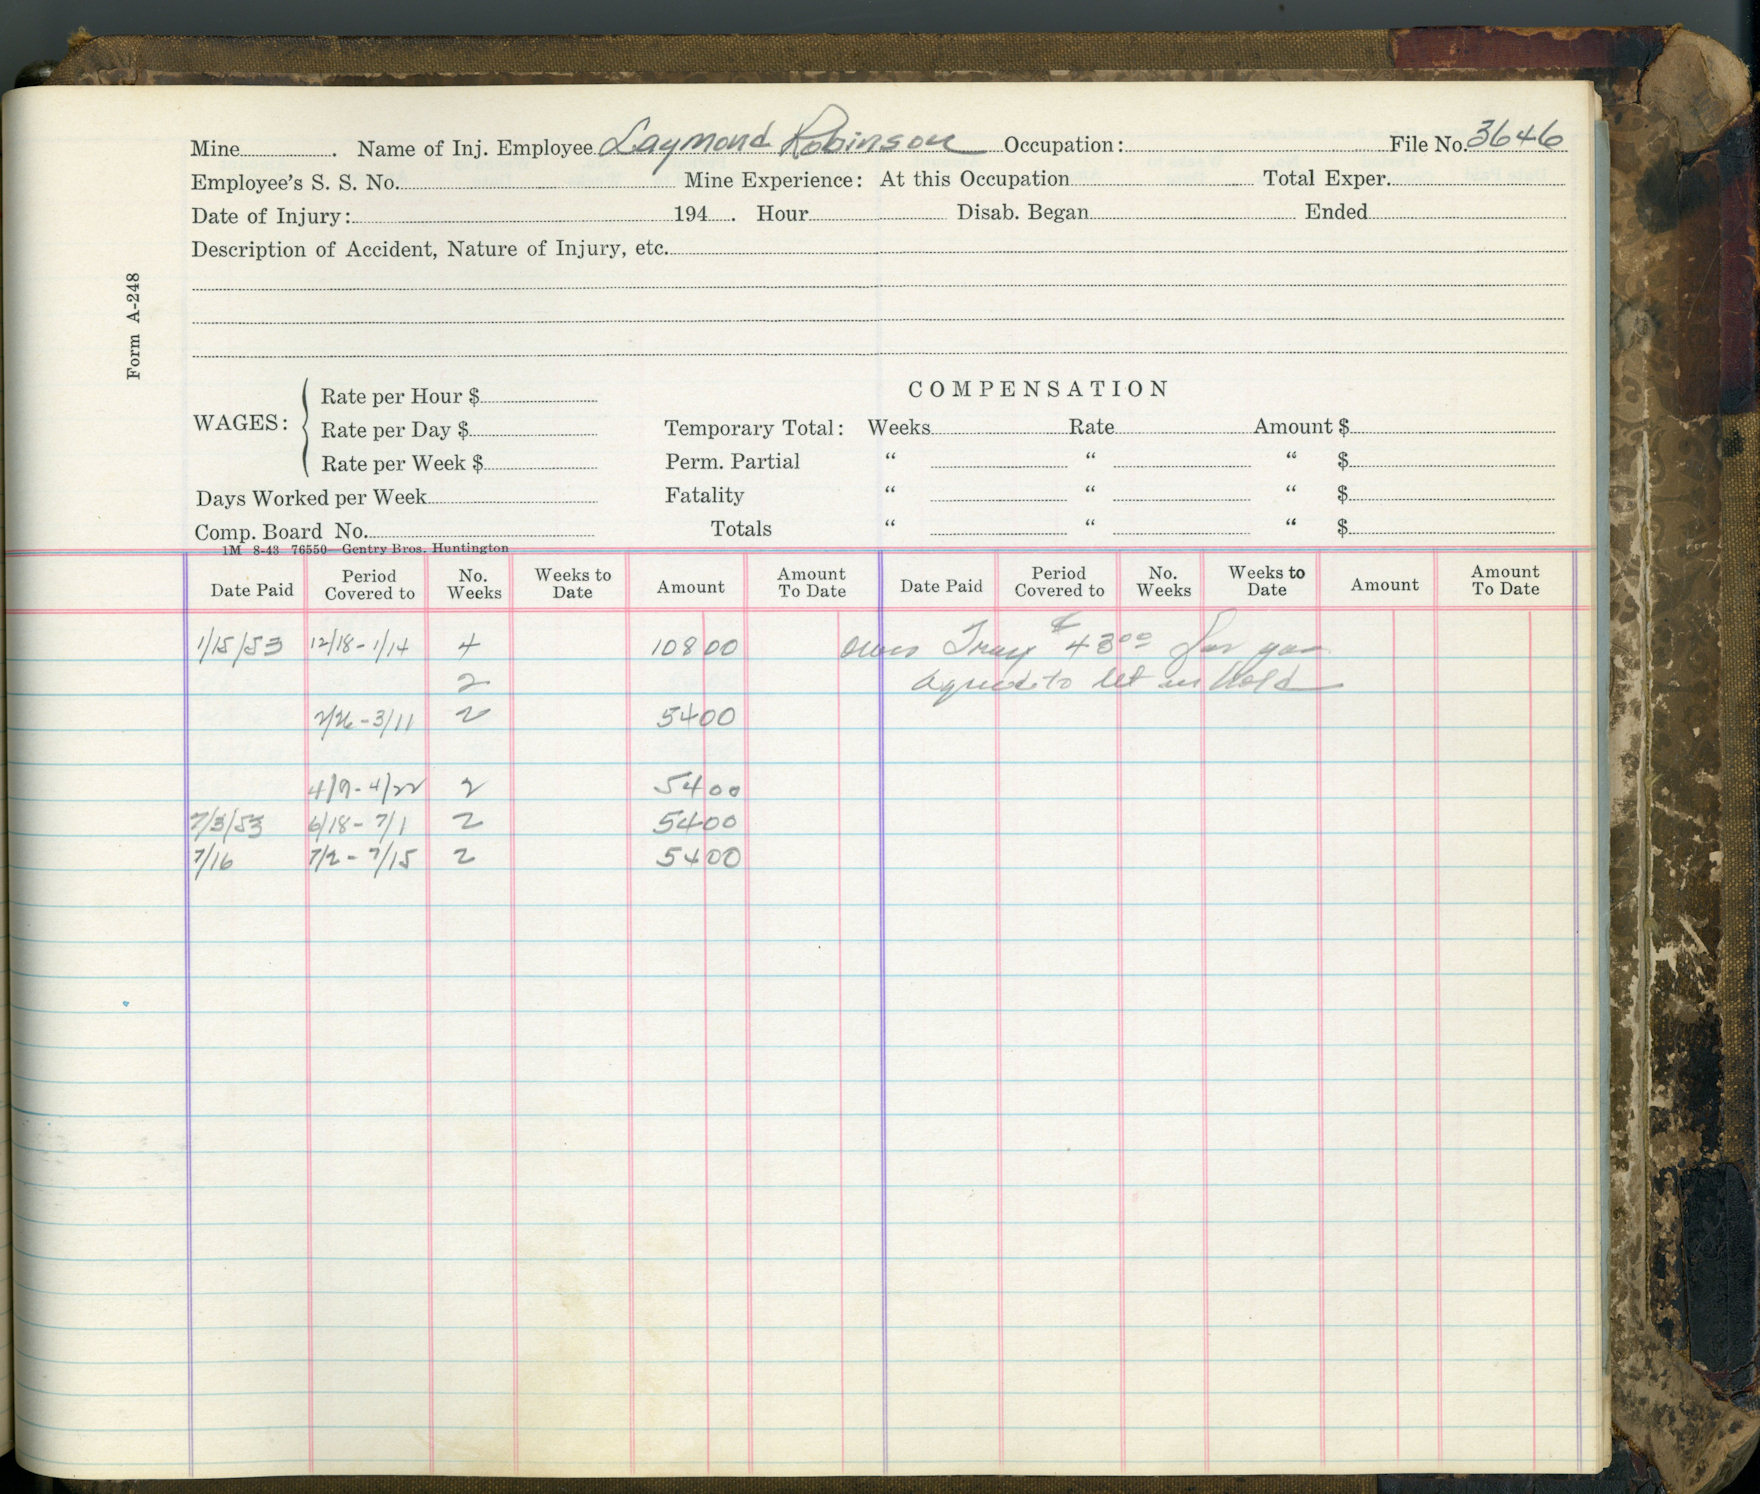 Mine Name of Inj. Employee Laymond Robinson Occupation: File No. 3646
Employee's S. S. No. Mine Experience: At this Occupation Total Exper.
Date of Injury: 194 . Hour Disab. Began Ended
Description of Accident, Nature of Injury, etc.
Form A-248
COMPENSATION
WAGES: Rate per Hour $
Rate per Day $ Temporary Total: Weeks Rate Amount $
Rate per Week $ Perm. Partial " " " $
Days Worked per Week Fatality " " " $
Comp. Board No. Totals " " " $
1M 8-43 76550—Gentry Bros. Huntington
Date Paid Period Covered to No. Weeks Weeks to Date Amount Amount To Date Date Paid Period Covered to No. Weeks Weeks to Date Amount Amount To Date
1/15/53 12/18-1/14 4 108 00 owes Troy $43 00 for gas
2 agreed to let us hold
2/26-3/11 2 54 00
4/9-4/22 2 54 00
7/3/53 6/18-7/1 2 54 00
7/16 7/2-7/15 2 54 00